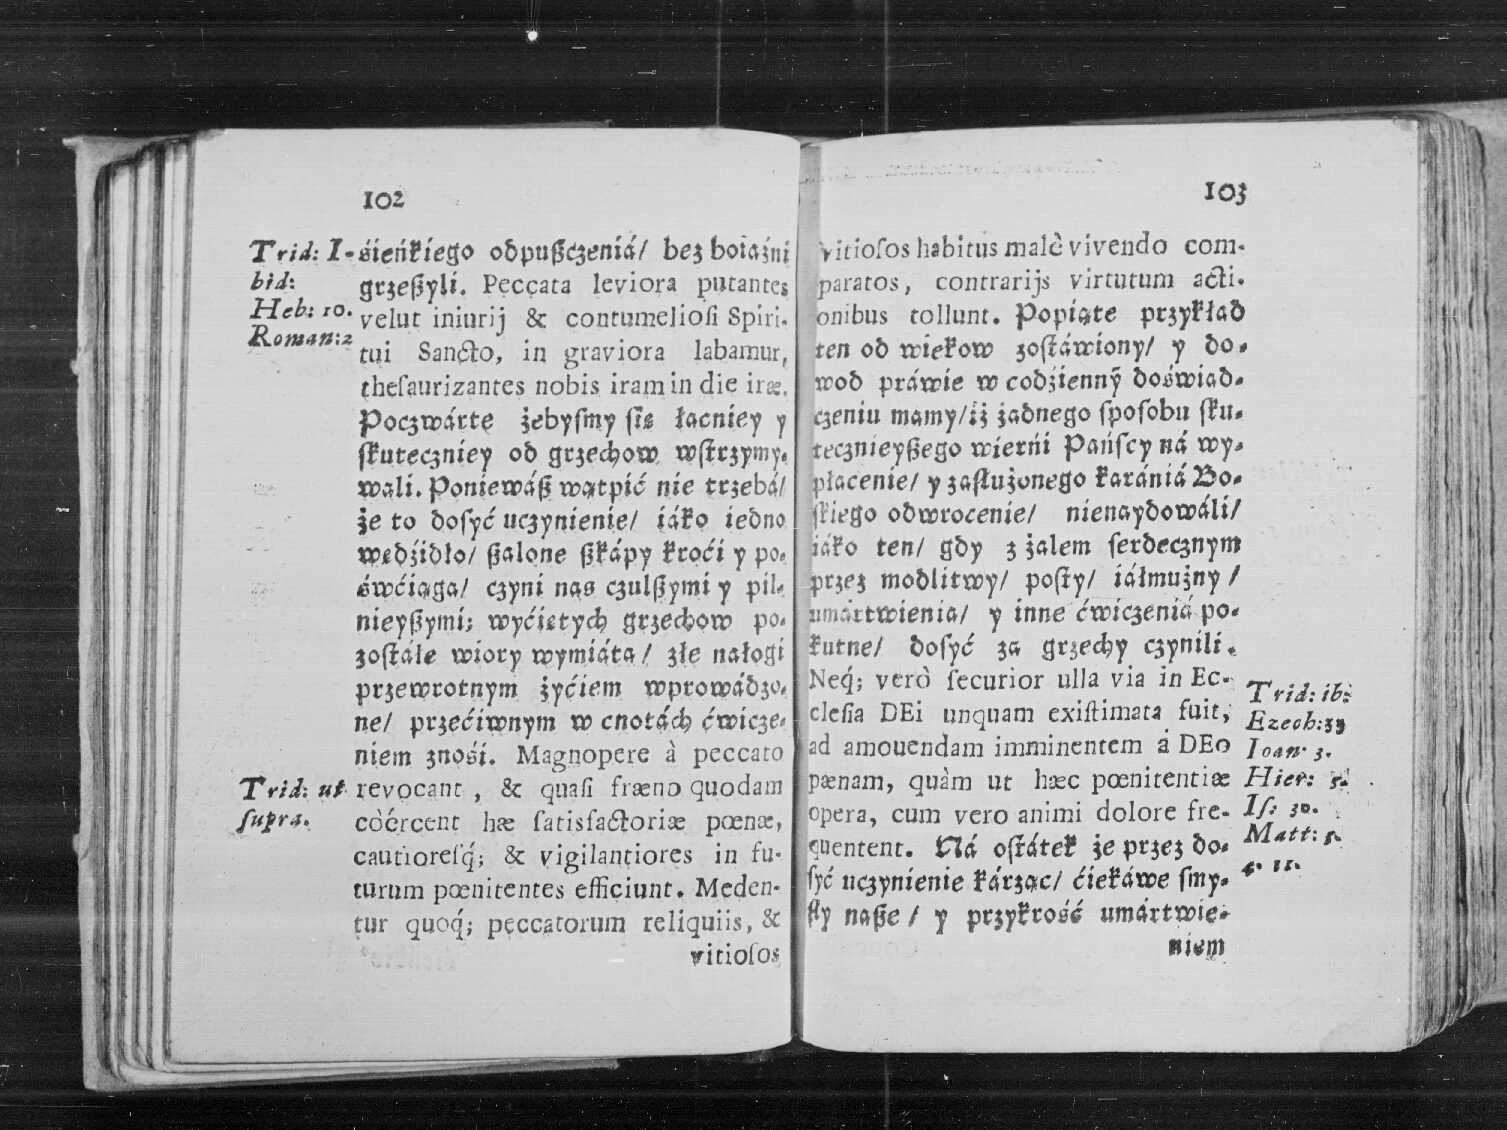 102
Trid: I-
bid:
Heb: 10.
Roman: 2
śieńkiego odpußczeniá/ bez boiaźni
grzeßyli. Peccata leviora putantes
velut iniurij & contumeliosi Spiri-
tui Sancto, in graviora labamur,
thesaurizantes nobis iram in die iræ.
Poczwárte żebysmy się łacniey y
skuteczniey od grzechow wstrzymy-
wali. Poniewáß wątpić nie trzebá/
że to dosyć uczynienie/ iáko iedno
wędźidło/ ßalone ßkápy kroći y po-
śwćiąga/ czyni nas czulßymi y pil-
nieyßymi; wyćiętych grzechow po-
zostáłe wiory wymiáta/ złe nałogi
przewrotnym żyćiem wprowádzo-
ne/ przećiwnym w cnotách ćwicze-
niem znośi. Magnopere à peccato
Trid: ut
supra.
revocant, & quasi fræno quodam
coërcent hæ satisfactoriæ pœnæ,
cautioresq́; & vigilantiores in fu-
turum pœnitentes efficiunt. Meden-
tur quoq́; peccatorum reliquiis, &
vitiosos
103
vitiosos habitus malè vivendo com-
paratos, contrarijs virtutum acti-
onibus tollunt. Popiąte przykład
ten od wiekow zostáwiony/ y do-
wod práwie w codźienny̅ doświad-
czeniu mamy/ iż żadnego sposobu sku-
tecznieyßego wierńi Pańscy ná wy-
płacenie/ y zasłużonego karániá Bo-
skiego odwrocenie/ nienaydowáli/
iáko ten/ gdy z żalem serdecznym
przez modlitwy/ posty/ iáłmużny/
umártwienia/ y inne ćwiczeniá po-
kutne/ dosyć za grzechy czynili.
Neq́; verò securior ulla via in Ec-
clesia DEi unquam existimata fuit,
ad amouendam imminentem à DEo
pænam, quàm ut hæc pœnitentiæ
opera, cum vero animi dolore fre-
quentent. Ná ostátek że przez do-
syć uczynienie kárząc/ ćiekáwe smy-
sły naße/ y przykrość umártwie-
niem
Trid: ib:
Ezech: 33
Ioan: 3.
Hier: 5.
Is: 30.
Matt: 5.
6. 11.